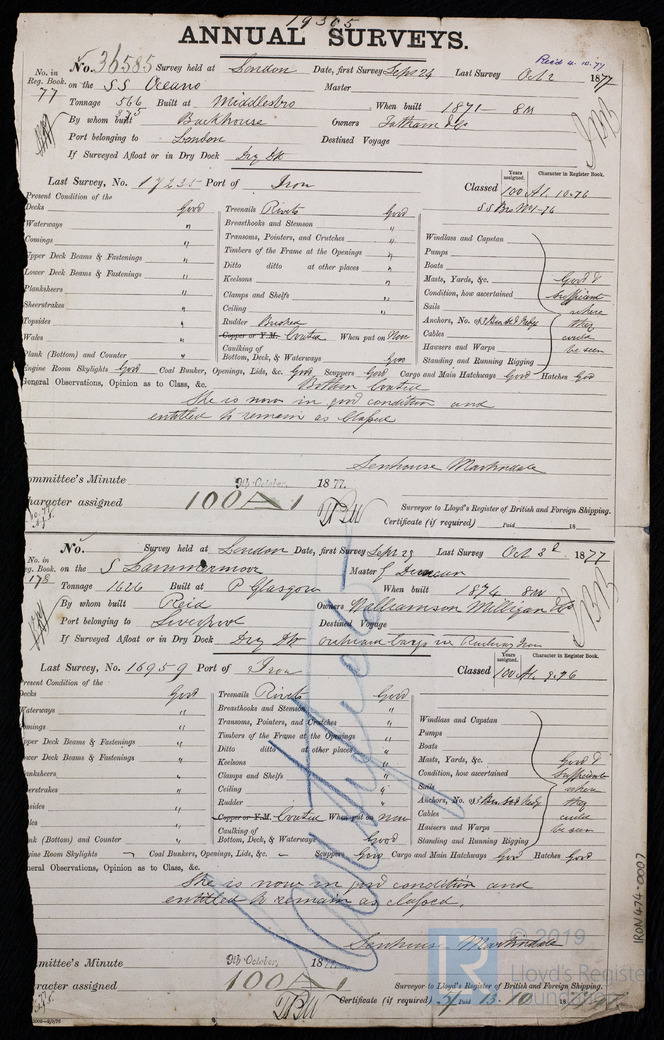 19305
ANNUAL SURVEYS.
No. in Reg. Book. 77
No. 36585 Survey held at London Date, first Survey Sept 26 Last Survey Oct 2 1877
on the SS Oceano Master
Tonnage 566 Built at Middlesbro When built 1871 - 8M
By whom built Backhouse Owners
Port belonging to London Destined Voyage
If Surveyed Afloat or in Dry Dock Dry Dk
Last Survey, No. 17235 Port of Iron Classed 100 A1. 10-76
Years assigned. Character in Register Book.
Present Condition of the
Decks Good Treenails Rivets Good
Waterways " Breasthooks and Stemson "
Comings " Transoms, Pointers, and Crutches " Windlass and Capstan
Upper Deck Beams & Fastenings " Timbers of the Frame at the Openings " Pumps
Lower Deck Beams & Fastenings " Ditto ditto at other places " Boats
Planksheers " Keelsons " Masts, Yards, &c. Good &
Sheerstrakes " Clamps and Shelfs " Condition, how ascertained sufficient
Topsides " Ceiling " Sails where
Wales " Rudder Anchors, No. of they
Copper or Y.M. Coated When put on Now Cables could
Plank (Bottom) and Counter " Caulking of Bottom, Deck, & Waterways Good Hawsers and Warps be seen
Standing and Running Rigging
Engine Room Skylights Good Coal Bunkers, Openings, Lids, &c. Good Scuppers Good Cargo and Main Hatchways Good Hatches Good
General Observations, Opinion as to Class, &c. Bottom Coated
She is now in good condition and
entitled to remain as Classed
Senhouse Martindale
Committee's Minute 9th October, 1877.
Character assigned 100 A 1
Surveyor to Lloyd's Register of British and Foreign Shipping.
Certificate (if required) Paid 18
No. in Reg. Book. 178
No. Survey held at London Date, first Survey Sept 29 Last Survey Oct 3d 1877
on the S Lammermoor Master J Duncan
Tonnage 1626 Built at P Glasgow When built 1874 8M
By whom built Reid Owners Williamson Milligan & Co
Port belonging to Liverpool Destined Voyage
If Surveyed Afloat or in Dry Dock Dry Dk
Last Survey, No. 16959 Port of Iron Classed 100 A1. 9-76
Years assigned. Character in Register Book.
Present Condition of the
Decks Good Treenails Rivets Good
Waterways " Breasthooks and Stemson "
Comings " Transoms, Pointers, and Crutches " Windlass and Capstan
Upper Deck Beams & Fastenings " Timbers of the Frame at the Openings " Pumps
Lower Deck Beams & Fastenings " Ditto ditto at other places " Boats
Planksheers " Keelsons " Masts, Yards, &c. Good &
Sheerstrakes " Clamps and Shelfs " Condition, how ascertained sufficient
Topsides " Ceiling " Sails where
Wales " Rudder " Anchors, No. of they
Copper or Y.M. Coated When put on now Cables could
Plank (Bottom) and Counter " Caulking of Bottom, Deck, & Waterways Good Hawsers and Warps be seen
Standing and Running Rigging
Engine Room Skylights - Coal Bunkers, Openings, Lids, &c. - Scuppers Good Cargo and Main Hatchways Good Hatches Good
General Observations, Opinion as to Class, &c.
She is now in good condition and
entitled to remain as classed.
Senhouse Martindale
Committee's Minute 9th October, 1877.
Character assigned 100 A 1
Surveyor to Lloyd's Register of British and Foreign Shipping.
Certificate (if required) 5/ Paid 13.10 1877
IRON474-0007
© 2019
Lloyd's Register
Foundation